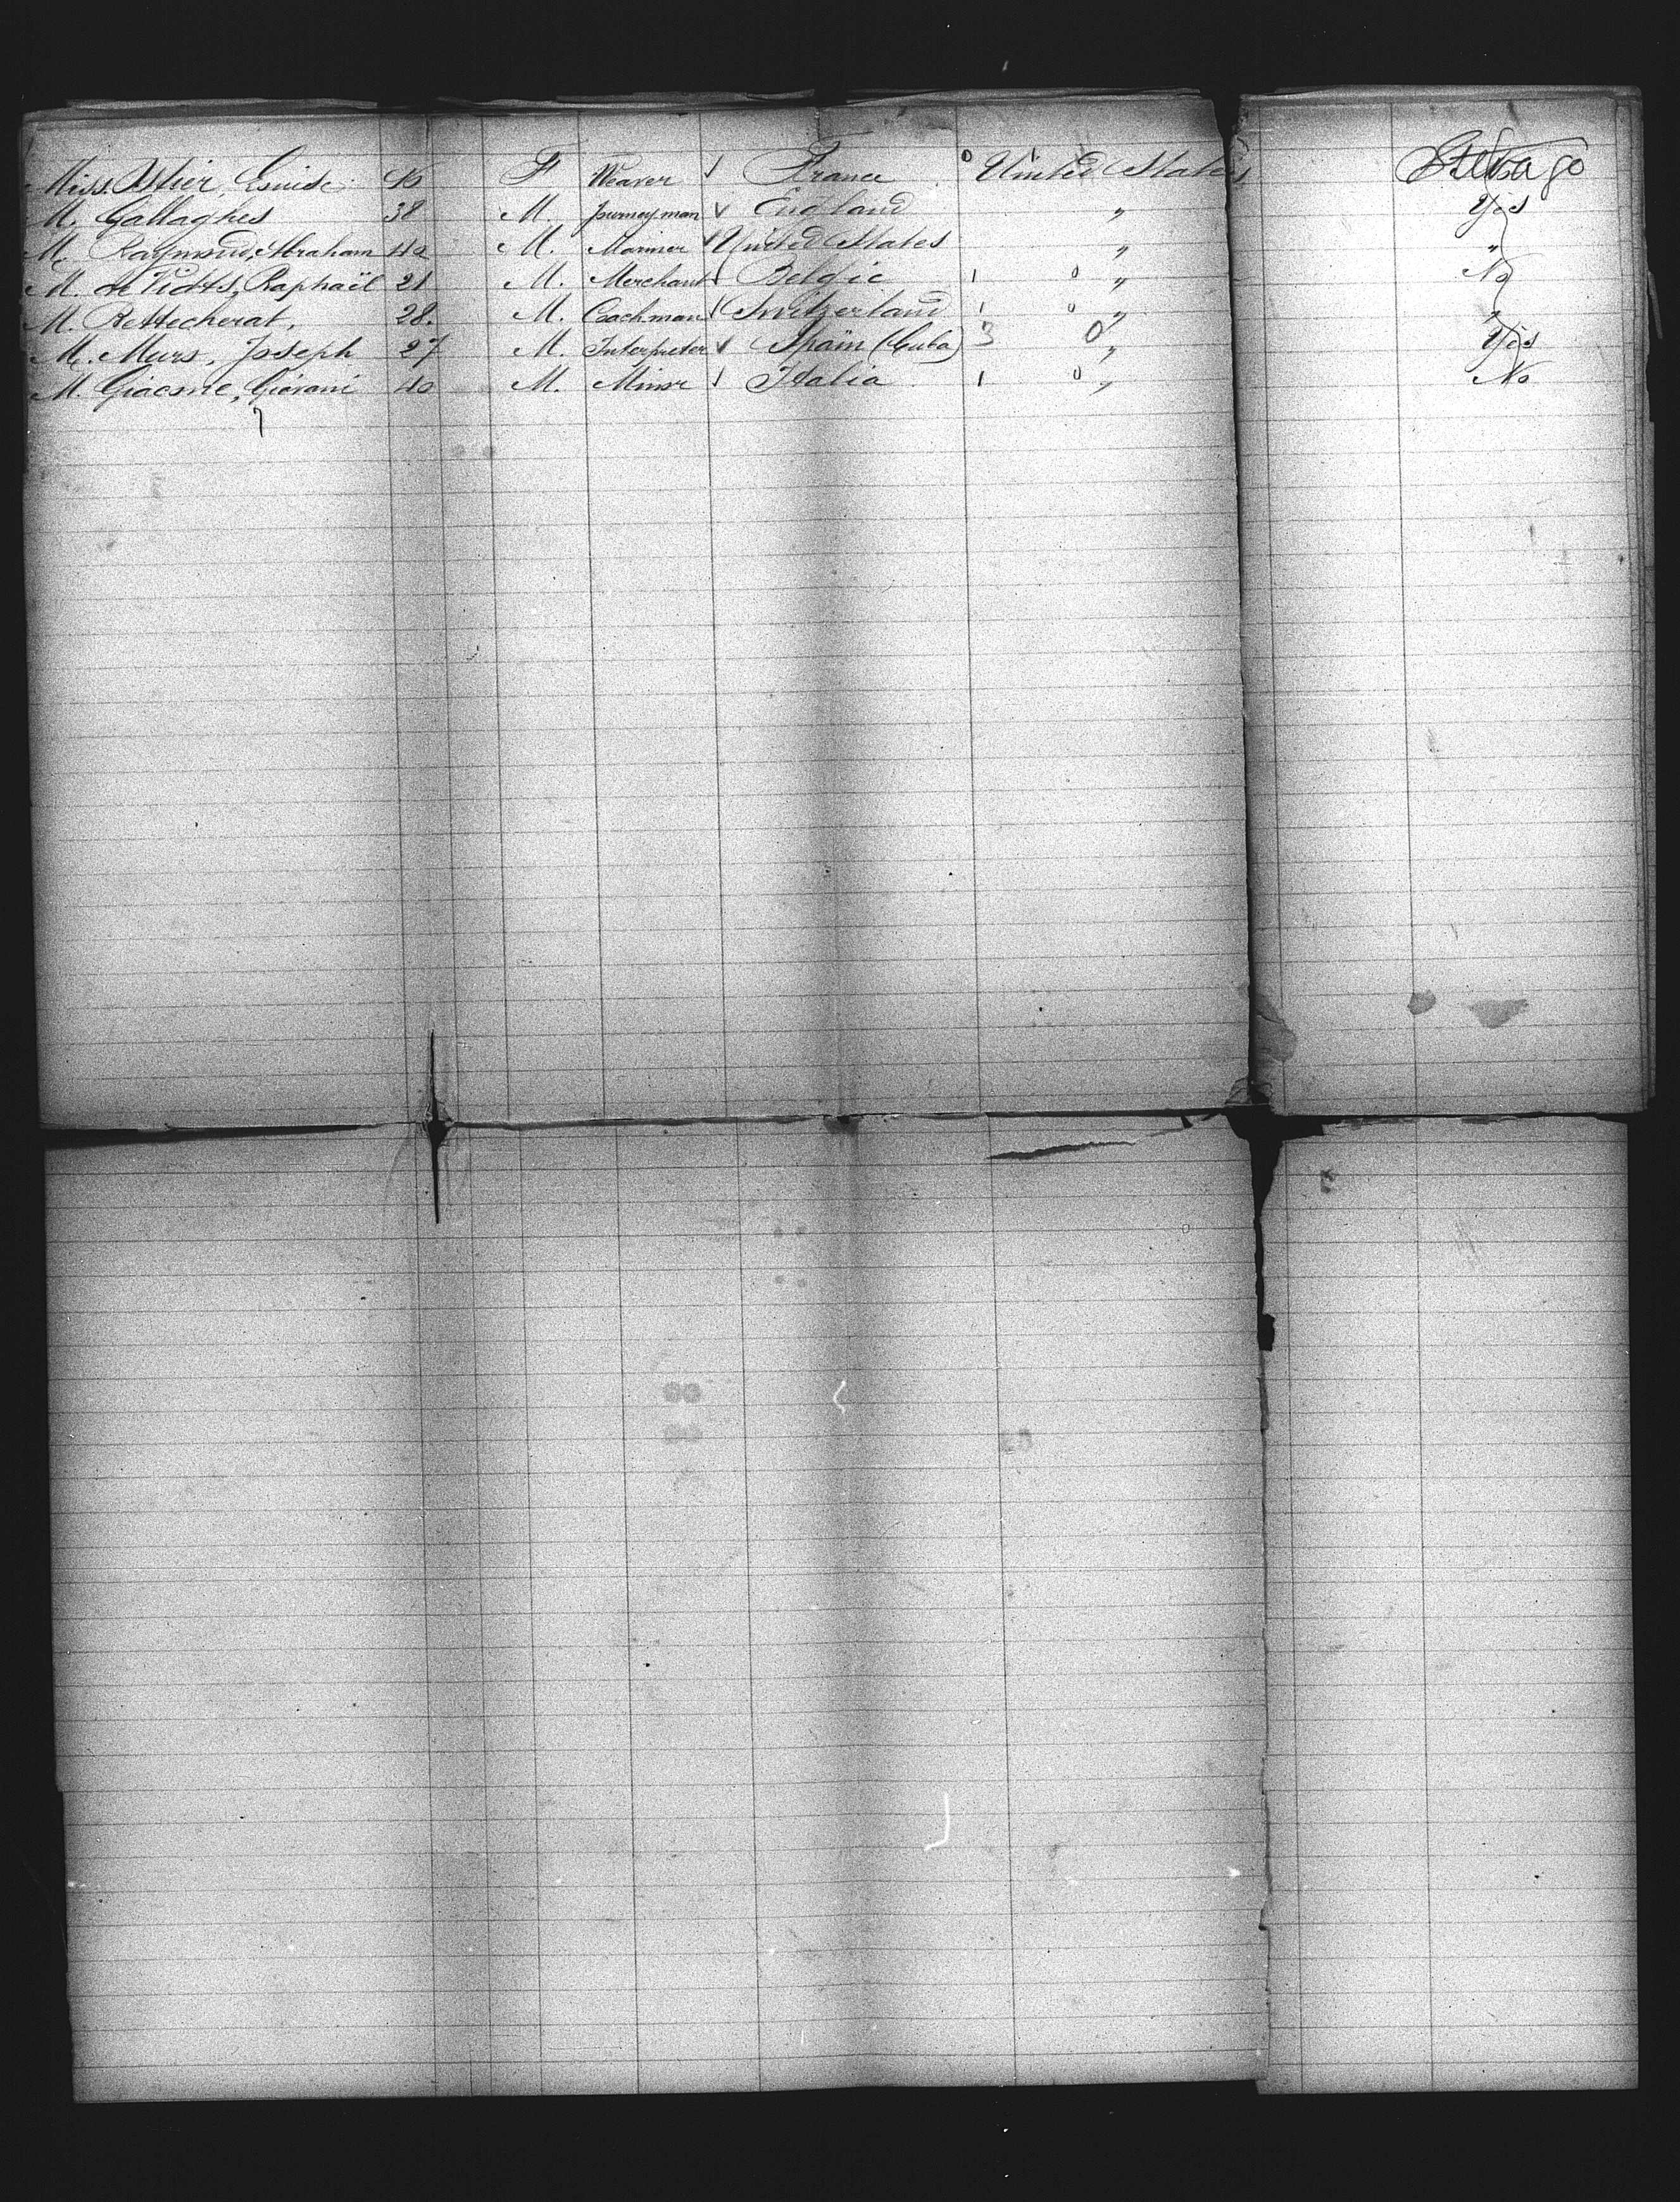 Miss Astier, Louise F Weaver France 0 United States Steerage
M. Gallaghes 38 M. Journeyman v England " Yes
M. Raymond, Abraham 42 M. Mariner v United States " "
M. de Vidts, Raphaël 21 M. Merchant Belgic 1 0 " No
M. 28. M. Coachman Switzerland 1 0 " "
M. Murs, Joseph 27 M. Interpreter v Spain (Cuba) 3 0 " Yes
M. Giacome, Giovani 40 M. Minor Italia 1 0 " No
7